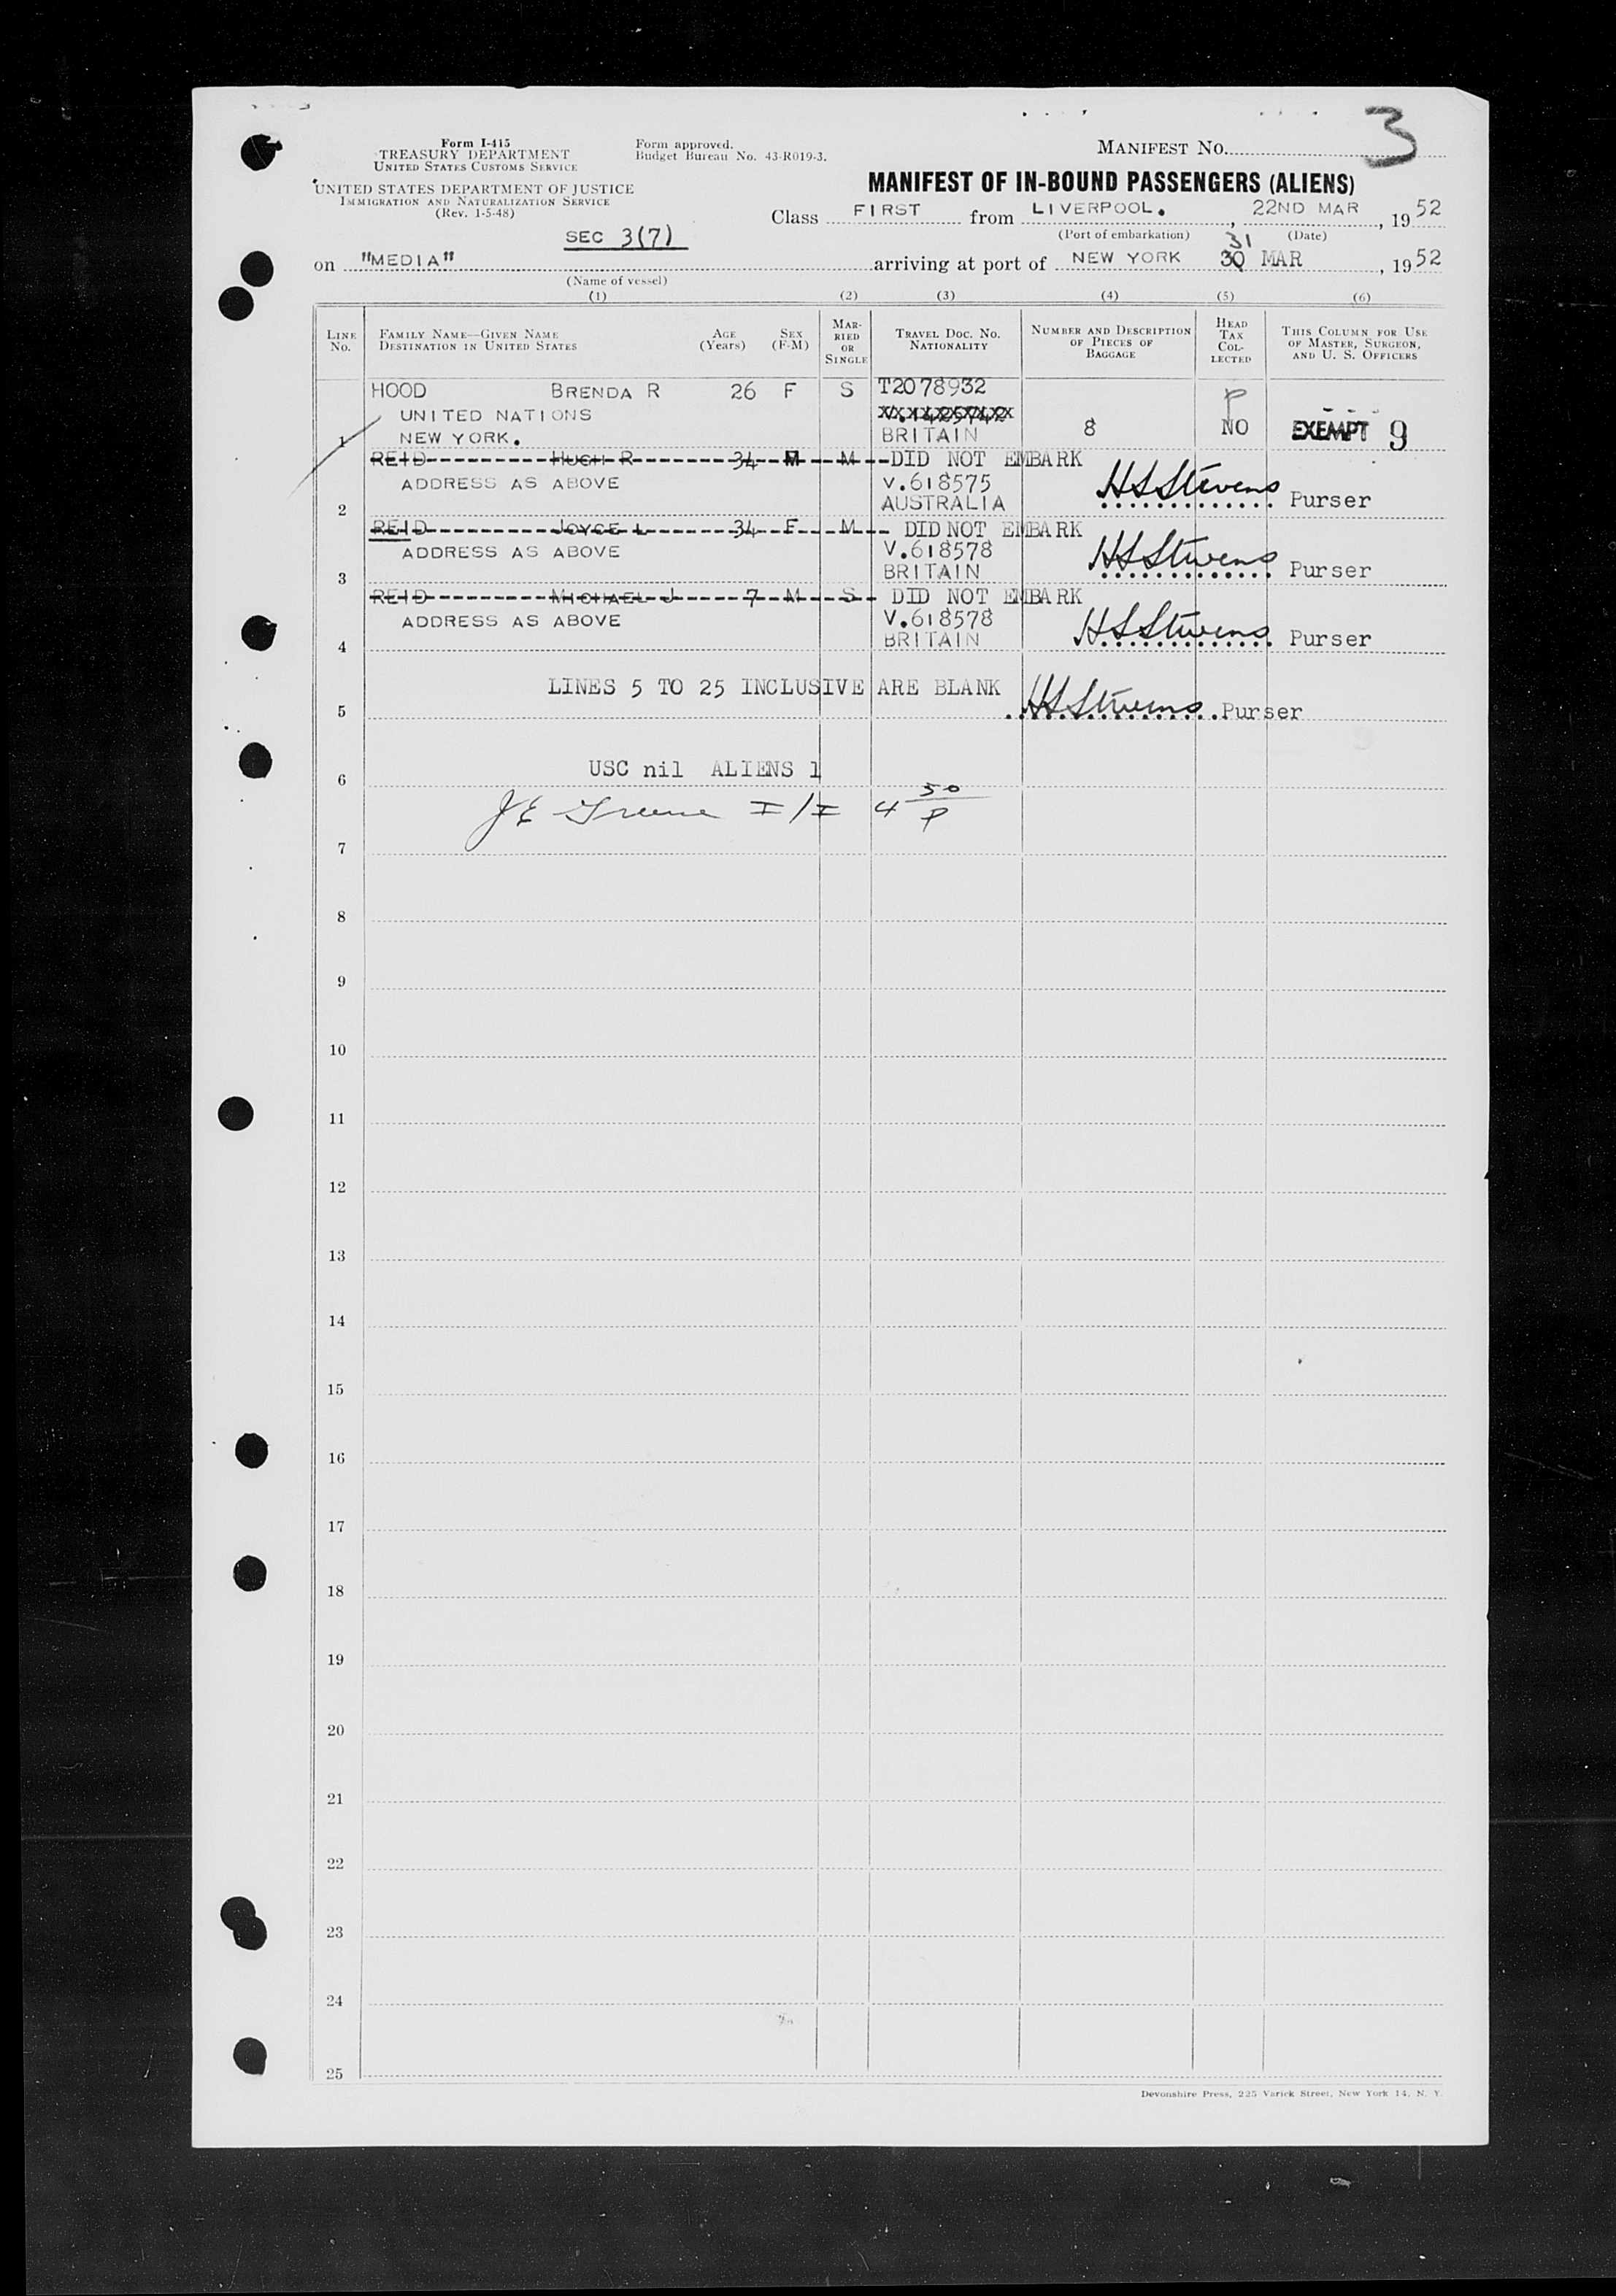 3
Form I-415
TREASURY DEPARTMENT
UNITED STATES CUSTOMS SERVICE
UNITED STATES DEPARTMENT OF JUSTICE
IMMIGRATION AND NATURALIZATION SERVICE
(Rev. 1-5-48)
Form approved.
Budget Bureau No. 43-R019-3.
MANIFEST NO.
MANIFEST OF IN-BOUND PASSENGERS (ALIENS)
Class FIRST from LIVERPOOL. , 22ND MAR , 19 52
(Port of embarkation) (Date)
SEC 3(7)
31
on "MEDIA" arriving at port of NEW YORK 30 MAR , 19 52
(Name of vessel)
(1) (2) (3) (4) (5) (6)
LINE No. FAMILY NAME—GIVEN NAME DESTINATION IN UNITED STATES AGE (Years) SEX (F-M) MAR-RIED OR SINGLE TRAVEL DOC. NO. NATIONALITY NUMBER AND DESCRIPTION OF PIECES OF BAGGAGE HEAD TAX COL-LECTED THIS COLUMN FOR USE OF MASTER, SURGEON, AND U. S. OFFICERS
HOOD BRENDA R 26 F S T2078932 P
UNITED NATIONS
1 NEW YORK. BRITAIN 8 NO EXEMPT 9
REID HUGH R 34 M M DID NOT EMBARK
ADDRESS AS ABOVE V.618575 HS Stevens
2 AUSTRALIA Purser
REID JOYCE L 34 F M DID NOT EMBARK
ADDRESS AS ABOVE V.618578 HS Stevens
3 BRITAIN Purser
REID MICHAEL J 7 M S DID NOT EMBARK
ADDRESS AS ABOVE V.618578 HS Stevens
4 BRITAIN Purser
LINES 5 TO 25 INCLUSIVE ARE BLANK HS Stevens
5 Purser
USC nil ALIENS 1
6
JE Greene I/I 4 50 P
7
8
9
10
11
12
13
14
15
16
17
18
19
20
21
22
23
24
25
Devonshire Press, 225 Varick Street, New York 14, N. Y.